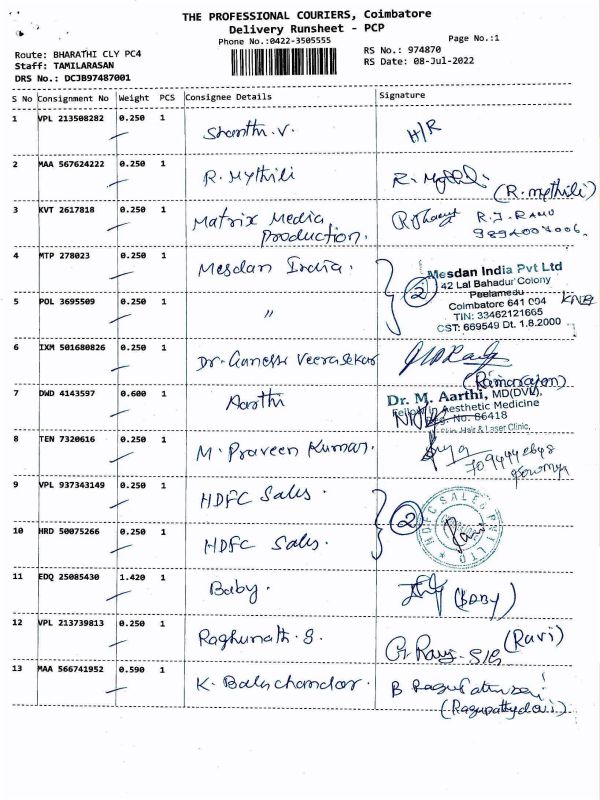 THE PROFESSIONAL COURIERS, Coimbatore
Delivery Runsheet - PCP
Phone No.:0422-3505555
Page No.:1
Route: BHARATHI CLY PC4
RS No.: 974870
Staff: TAMILARASAN
RS Date: 08-Jul-2022
DRS No.: DCJB97487001
S No Consignment No Weight PCS Consignee Details Signature
1 VPL 213508282 0.250 1 Shanthi.V. H/R
2 MAA 567624222 0.250 1 R.Mythili
(R.mythili)
3 KVT 2617818 0.250 1 Matrix Media R.J.RAMU
Production.
4 MTP 278023 0.250 1 Mesdan India. 2
Mesdan India Pvt Ltd
42 Lal Bahadur Colony
Peelamedu
Coimbatore 641 004
TIN: 33462121665
CST: 669549 Dt. 1.8.2000
5 POL 3695509 0.250 1 "
6 IXM 501680826 0.250 1 Dr.Ganesh Veerasekar
7 DWD 4143597 0.600 1 Aarthi
Dr. M. Aarthi, MD(DVL),
Fellow in Aesthetic Medicine
Reg. No. 86418
Skin, Hair & Laser Clinic,
8 TEN 7320616 0.250 1 M.Praveen Kumar.
9 VPL 937343149 0.250 1 HDFC Sales.
2
HDFC SALES PVT LTD
Ravi
10 HRD 50075266 0.250 1 HDFC Sales.
11 EDQ 25085430 1.420 1 Baby. (BABY)
12 VPL 213739813 0.250 1 Raghunath.S. (Ravi)
13 MAA 566741952 0.590 1 K.Balachandar.